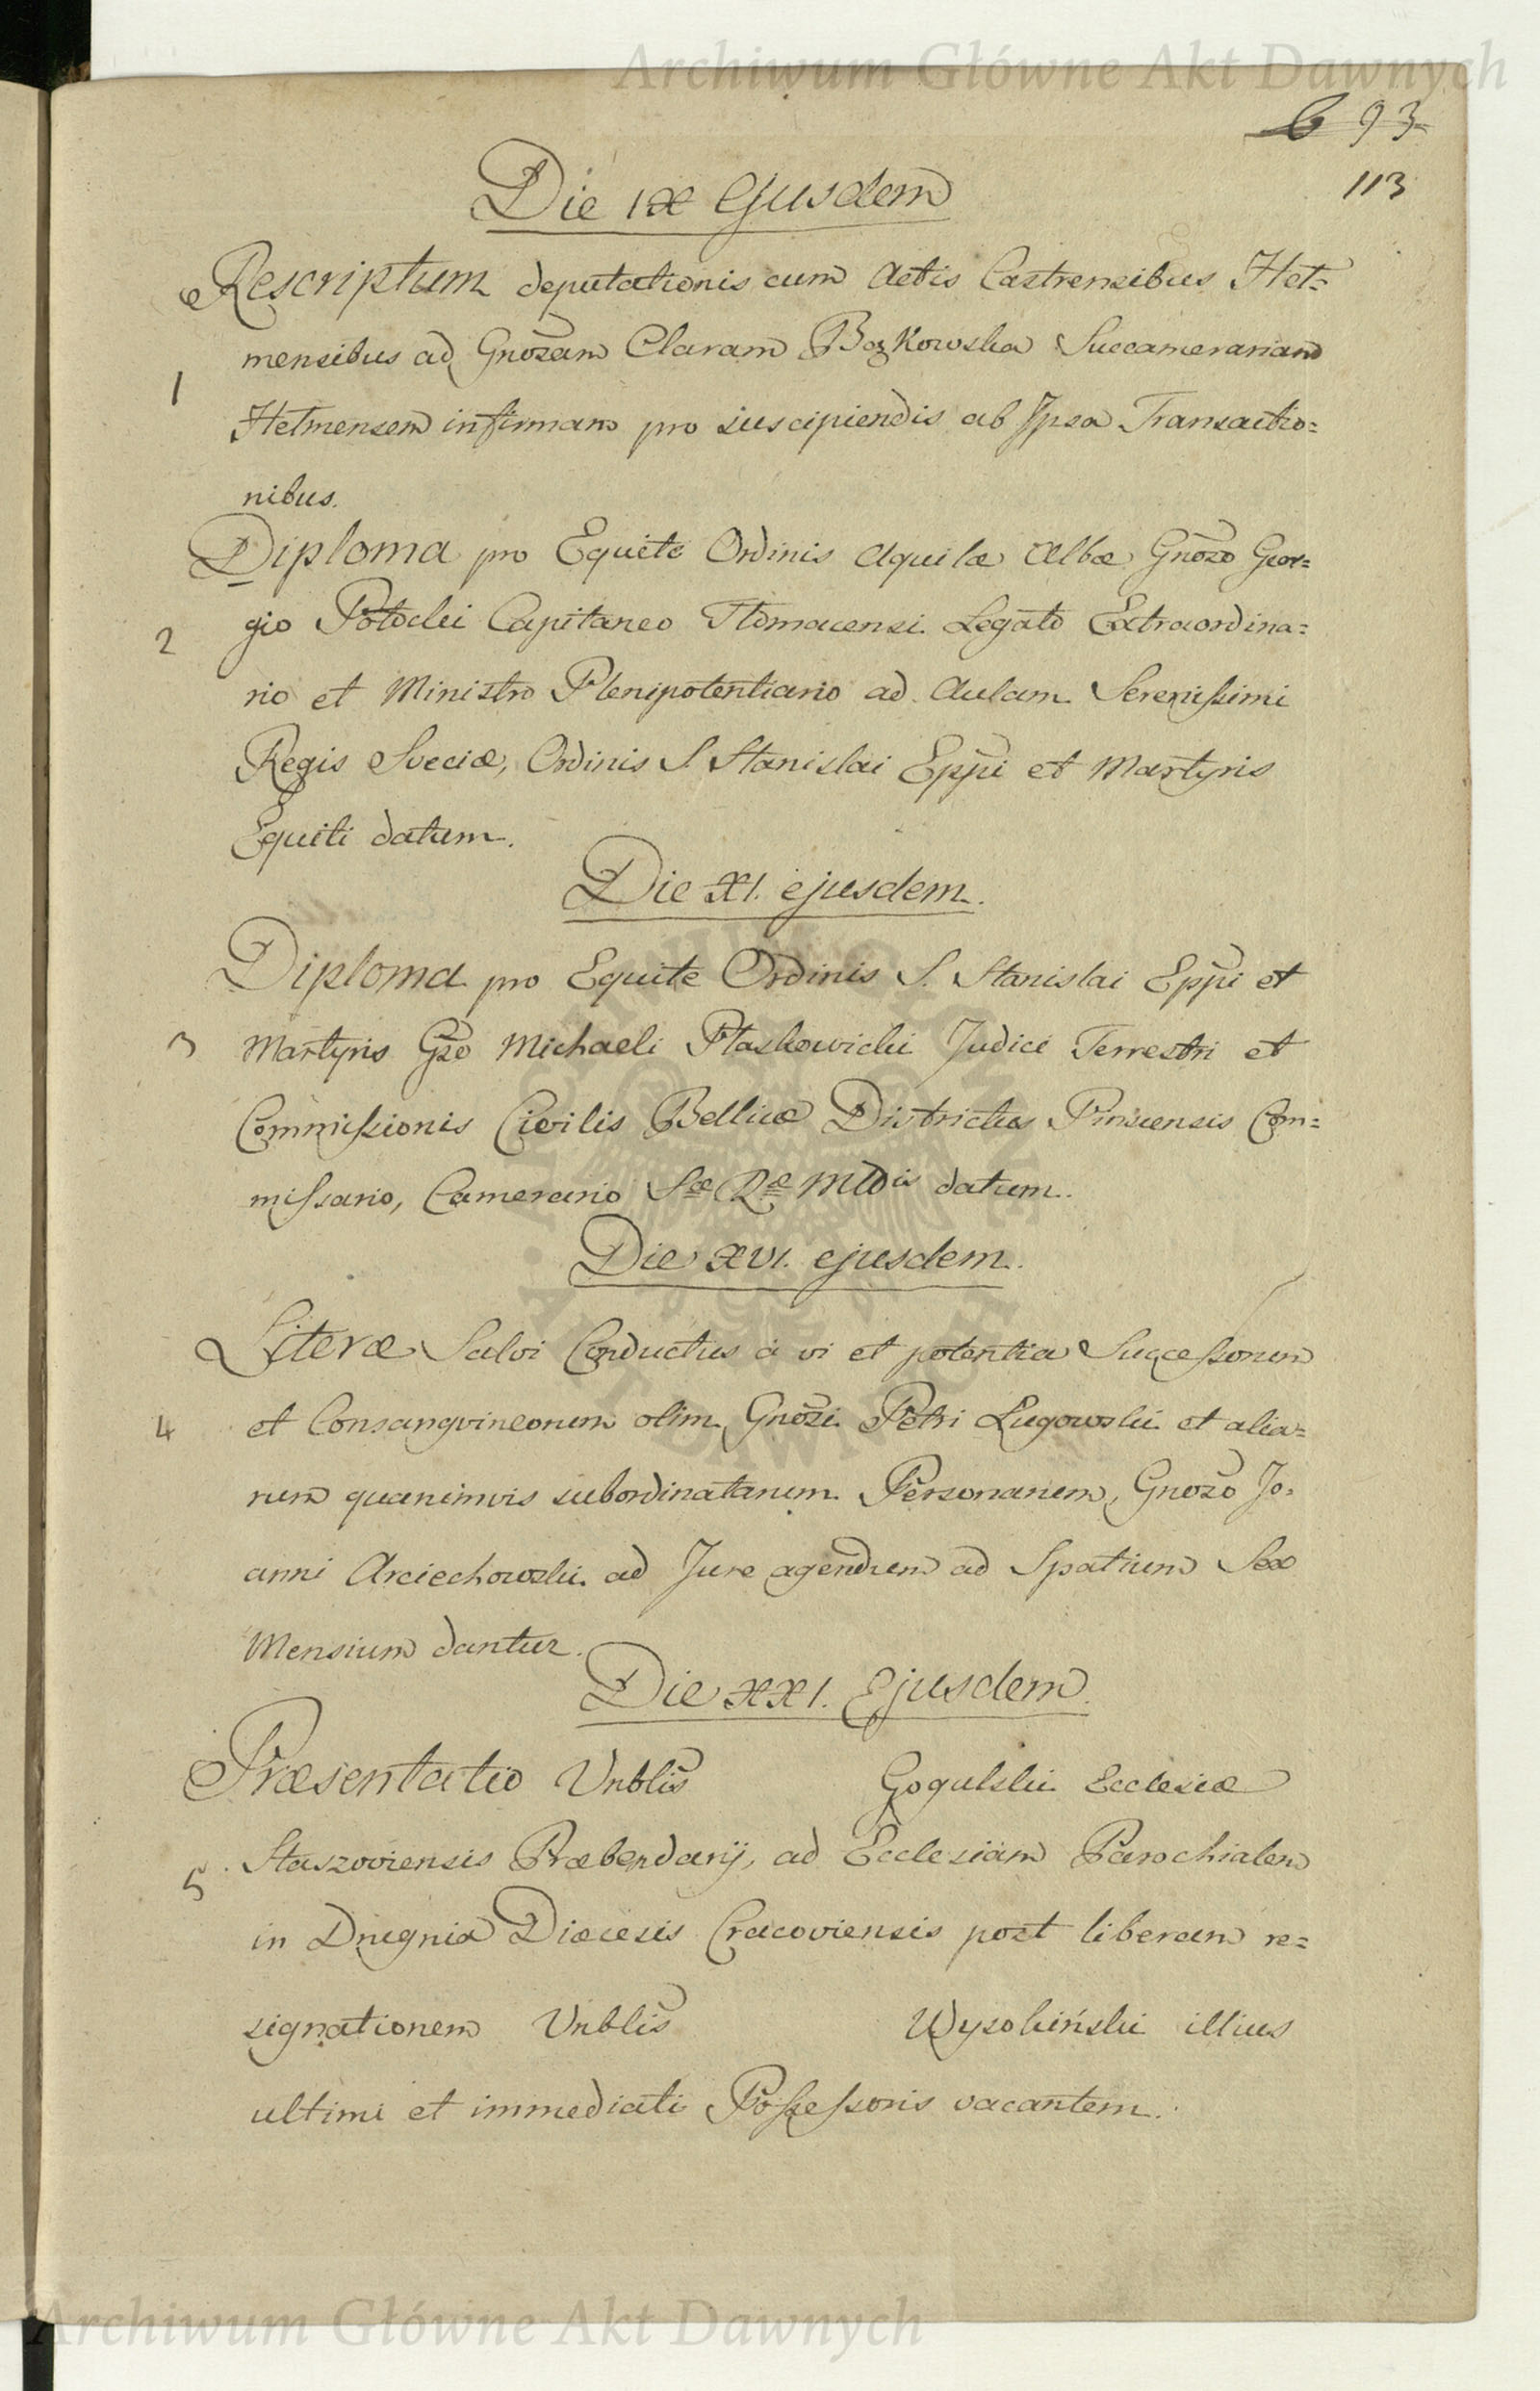 Archiwum Główne Akt Dawnych
6 93
113
Die IX Ejusdem
Rescriptum deputationis cum Actis Castrensibus Het=
mensibus ad Gnosam Claram Succamerariam
1
Hetmensem infirmam pro suscipiendis ab Ipsa Transactio=
nibus.
Diploma pro Equite Ordinis Aquilæ Albæ Gnoso Geor=
2
gio Potocki Capitaneo Tłomacensi Legato Extraordina=
rio et Ministro Plenipotentiario ad Aulam Serenissimi
Regis Sveciæ, Ordinis S. Stanislai Eppi et Martyris
Equiti datum.
Die XI. ejusdem.
Diploma pro Equite Ordinis S. Stanislai Eppi et
3
Martyris Gso Michaeli Ptaskowicki Judici Terrestri et
Commissionis Civilis Bellicæ Districtus Pinscensis Com=
missario, Camerario Sæ Ræ Mttis datum.
Die XVI. ejusdem.
Literæ Salvi Conductus à vi et potentia Successorum
4
et Consangvineorum olim Gnosi Petri Lugowski et alia=
rum quarumvis subordinatarum Personarum, Gnoso Jo=
anni Arciechowski ad Jure agendum ad Spatium Sex
Mensium dantur.
Die XXI. Ejusdem.
Præsentatio Vnblis Gogulski Ecclesiæ
5
Staszoviensis Præbendarij, ad Ecclesiam Parochialem
in Drugnia Diæcesis Cracoviensis post liberam re=
signationem Vnblis Wysokiński illius
ultimi et immediati Possessoris vacantem.
Archiwum Główne Akt Dawnych